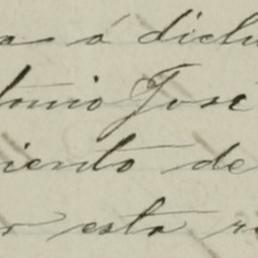 a á dichu
tonio José
iento de
r esta r